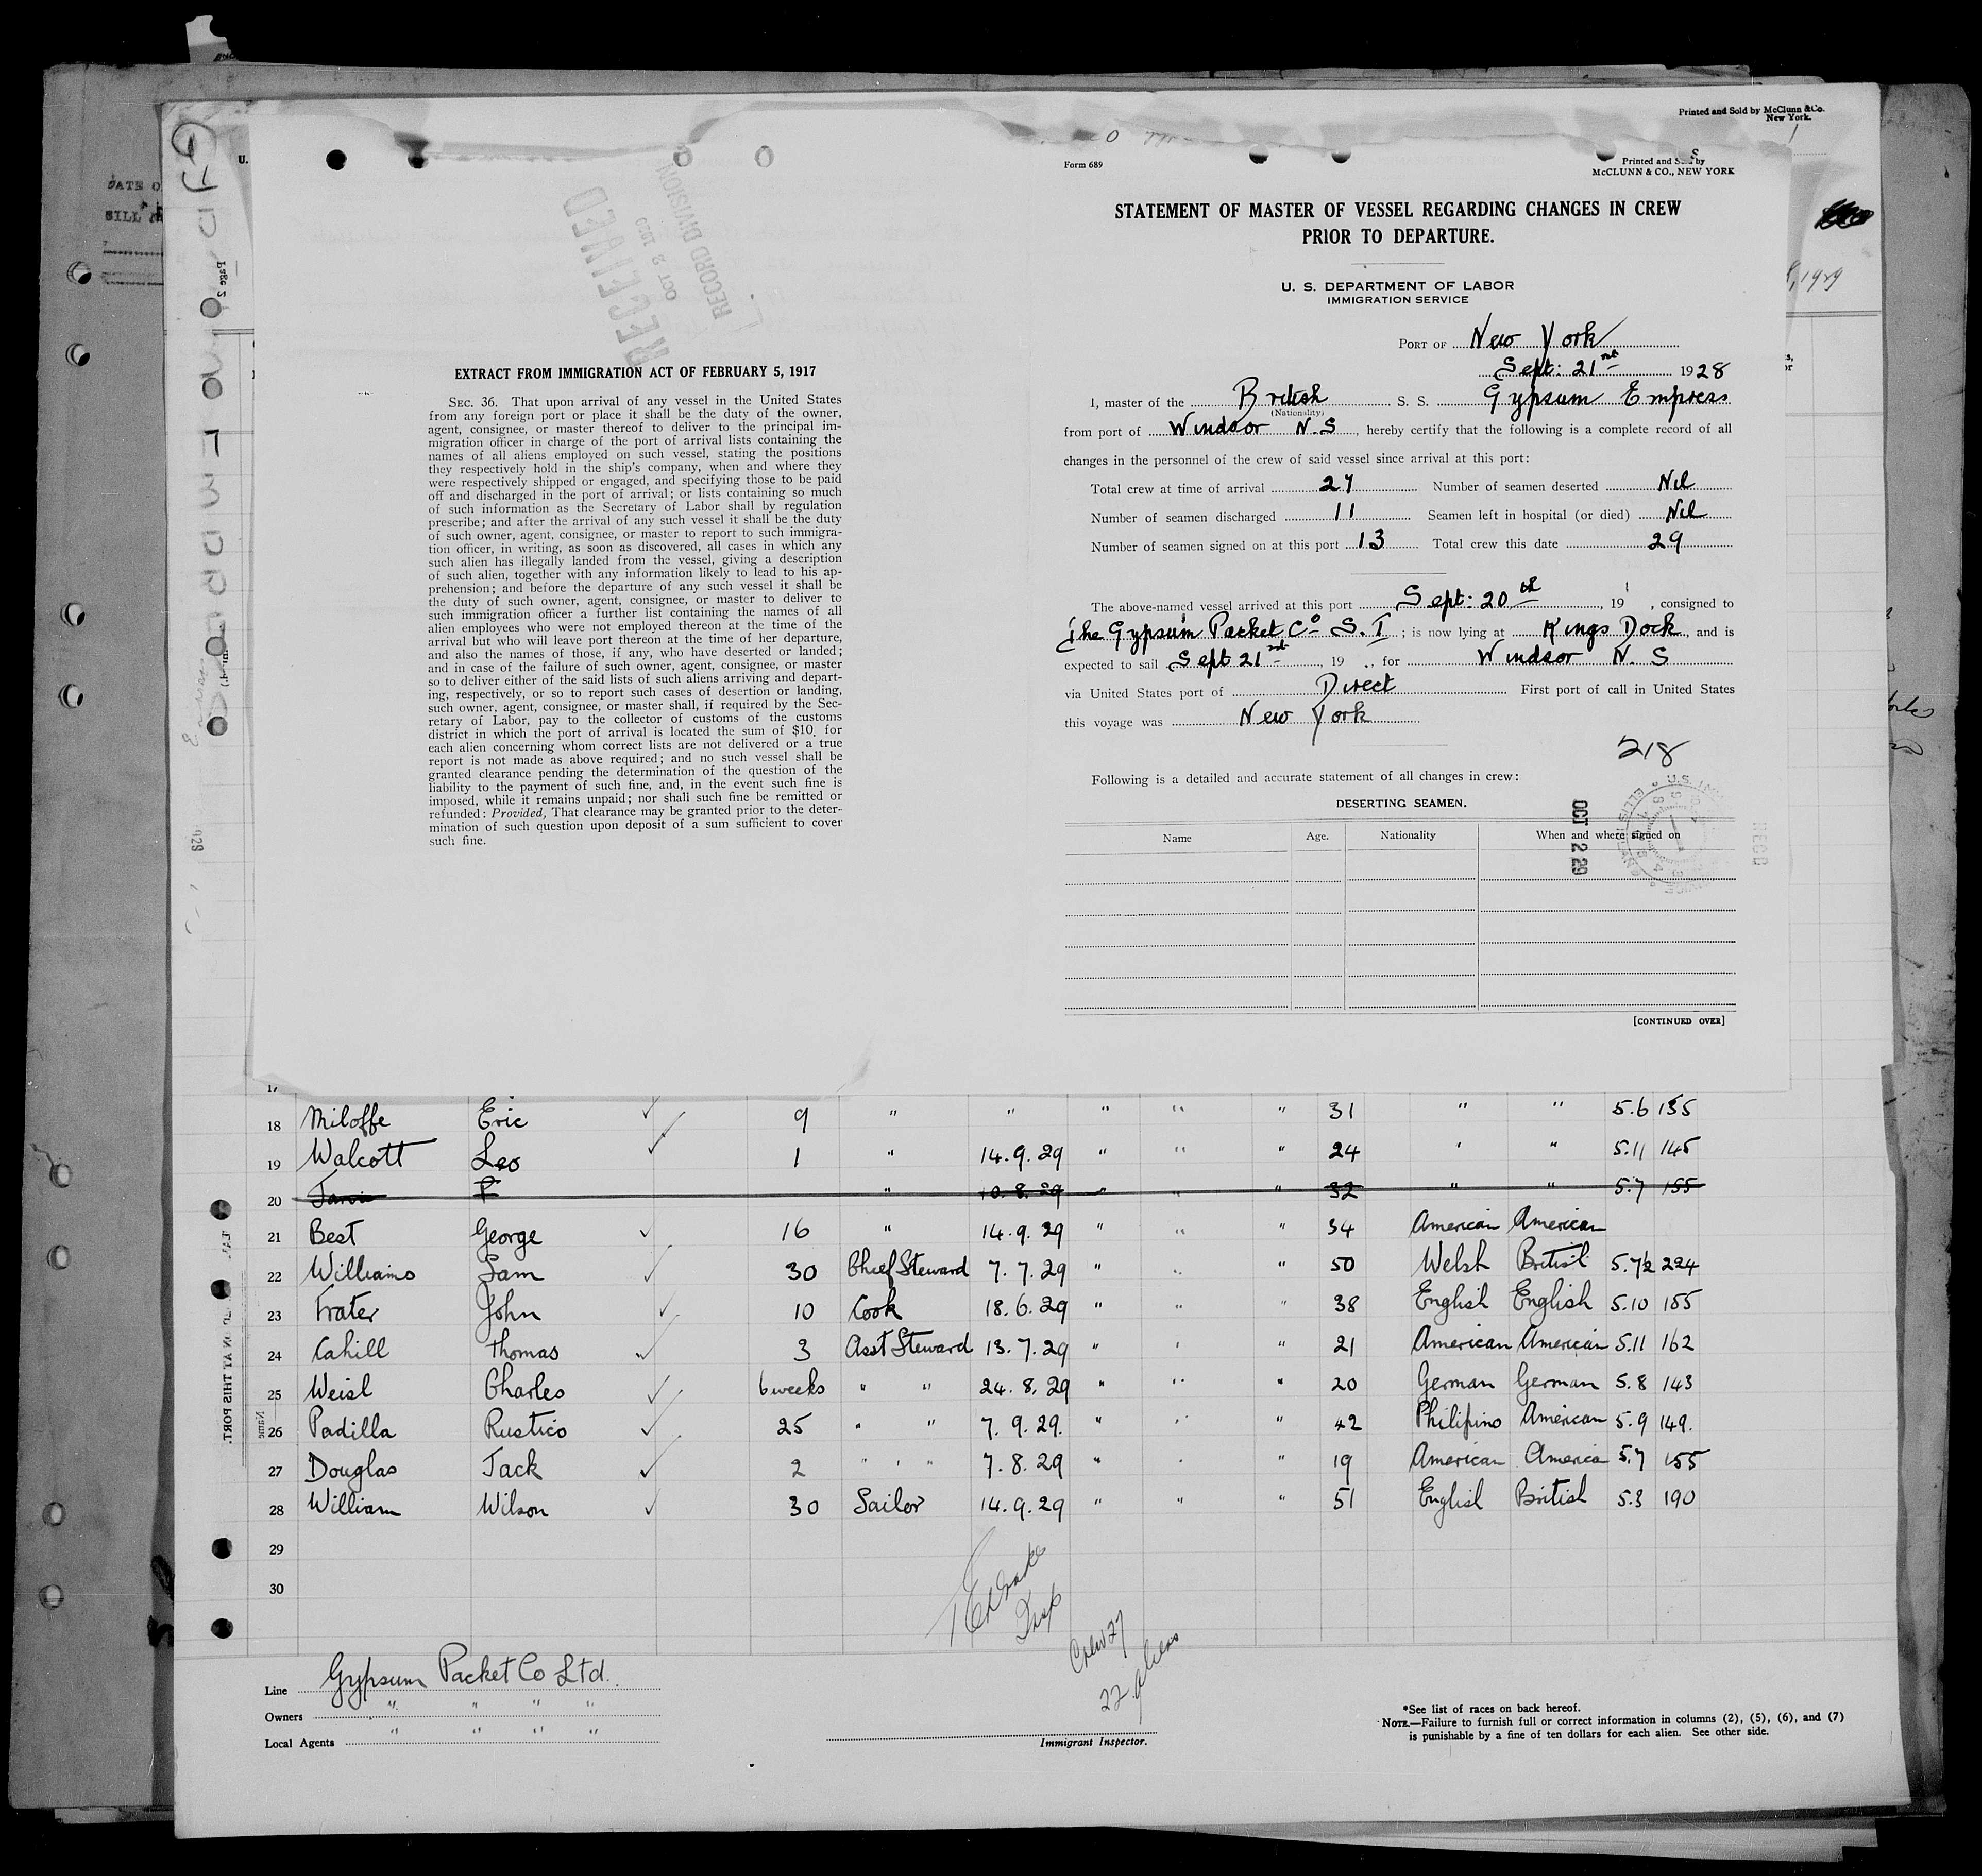 Printed and Sold by McClunn & Co.
New York.
DATE O
BILL
Page 2
RECEIVED
OCT 8 1929
RECORD DIVISION
EXTRACT FROM IMMIGRATION ACT OF FEBRUARY 5, 1917
SEC. 36. That upon arrival of any vessel in the United States
from any foreign port or place it shall be the duty of the owner,
agent, consignee, or master thereof to deliver to the principal im-
migration officer in charge of the port of arrival lists containing the
names of all aliens employed on such vessel, stating the positions
they respectively hold in the ship's company, when and where they
were respectively shipped or engaged, and specifying those to be paid
off and discharged in the port of arrival; or lists containing so much
of such information as the Secretary of Labor shall by regulation
prescribe; and after the arrival of any such vessel it shall be the duty
of such owner, agent, consignee, or master to report to such immigra-
tion officer, in writing, as soon as discovered, all cases in which any
such alien has illegally landed from the vessel, giving a description
of such alien, together with any information likely to lead to his ap-
prehension; and before the departure of any such vessel it shall be
the duty of such owner, agent, consignee, or master to deliver to
such immigration officer a further list containing the names of all
alien employees who were not employed thereon at the time of the
arrival but who will leave port thereon at the time of her departure,
and also the names of those, if any, who have deserted or landed;
and in case of the failure of such owner, agent, consignee, or master
so to deliver either of the said lists of such aliens arriving and depart-
ing, respectively, or so to report such cases of desertion or landing,
such owner, agent, consignee, or master shall, if required by the Sec-
retary of Labor, pay to the collector of customs of the customs
district in which the port of arrival is located the sum of $10 for
each alien concerning whom correct lists are not delivered or a true
report is not made as above required; and no such vessel shall be
granted clearance pending the determination of the question of the
liability to the payment of such fine, and, in the event such fine is
imposed, while it remains unpaid; nor shall such fine be remitted or
refunded: Provided, That clearance may be granted prior to the deter-
mination of such question upon deposit of a sum sufficient to cover
such fine.
Form 689
Printed and Sold by
McCLUNN & CO., NEW YORK
STATEMENT OF MASTER OF VESSEL REGARDING CHANGES IN CREW
PRIOR TO DEPARTURE.
U. S. DEPARTMENT OF LABOR
IMMIGRATION SERVICE
PORT OF New York
Sept: 21st 1928
I, master of the British S. S. Gypsum Empress
(Nationality)
from port of Windsor N.S, hereby certify that the following is a complete record of all
changes in the personnel of the crew of said vessel since arrival at this port:
Total crew at time of arrival 27 Number of seamen deserted Nil
Number of seamen discharged 11 Seamen left in hospital (or died) Nil
Number of seamen signed on at this port 13 Total crew this date 29
The above-named vessel arrived at this port Sept: 20th, 19 , consigned to
The Gypsum Packet Co S. I; is now lying at Kings Dock, and is
expected to sail Sept 21st, 19 , for Windsor N. S
via United States port of Direct First port of call in United States
this voyage was New York
218
Following is a detailed and accurate statement of all changes in crew:
DESERTING SEAMEN.
Name Age. Nationality When and where signed on
OCT 2 29
RECD
[CONTINUED OVER]
, 1929
17
18 Miloffe Eric 9 " " " " " 31 " " 5.6 135
19 Walcott Leo 1 " 14.9.29 " " " 24 " " 5.11 145
20 " 10.8.29 " " " 32 " " 5.7 155
21 Best George 16 " 14.9.29 " " " 34 American American
22 Williams Sam 30 Chief Steward 7.7.29 " " " 50 Welsh British 5.7½ 224
23 Frater John 10 Cook 18.6.29 " " " 38 English English 5.10 155
24 Cahill Thomas 3 Asst Steward 13.7.29 " " " 21 American American 5.11 162
25 Weisl Charles 6 weeks " " 24.8.29 " " " 20 German German 5.8 143
26 Padilla Rustico 25 " " 7.9.29. " " " 42 Philipino American 5.9 149.
27 Douglas Jack 2 " " " 7.8.29 " " " 19 American America 5.7 155
28 William Wilson 30 Sailor 14.9.29 " " " 51 English British 5.3 190
29
30
AT THIS PORT.
Name
Insp
Crew 27
22 aliens
Line Gypsum Packet Co Ltd.
Owners " " " "
Local Agents " " " "
Immigrant Inspector.
*See list of races on back hereof.
NOTE.—Failure to furnish full or correct information in columns (2), (5), (6), and (7)
is punishable by a fine of ten dollars for each alien. See other side.